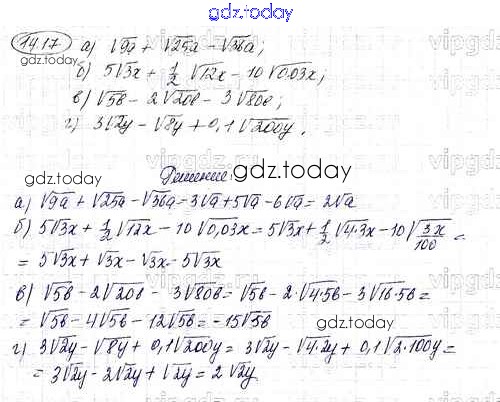 gdz.today
14.17 а) √9a + √25a − √36a;
gdz.today
б) 5√3x + 1/2 √12x − 10√0,03x;
в) √5в − 2√20в − 3√80в;
г) 3√2y − √8y + 0,1√200y.
Решение: gdz.today
а) √9a + √25a − √36a = 3√a + 5√a − 6√a = 2√a
gdz.today
б) 5√3x + 1/2 √12x − 10√0,03x = 5√3x + 1/2 √4·3x − 10√3x/100 =
= 5√3x + √3x − √3x = 5√3x
в) √5в − 2√20в − 3√80в = √5в − 2·√4·5в − 3√16·5в =
= √5в − 4√5в − 12√5в = −15√5в
gdz.today
г) 3√2y − √8y + 0,1√200y = 3√2y − √4·2y + 0,1√2·100y =
= 3√2y − 2√2y + √2y = 2√2y
gdz.today